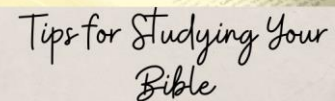 Tips for Studying Your
Bible